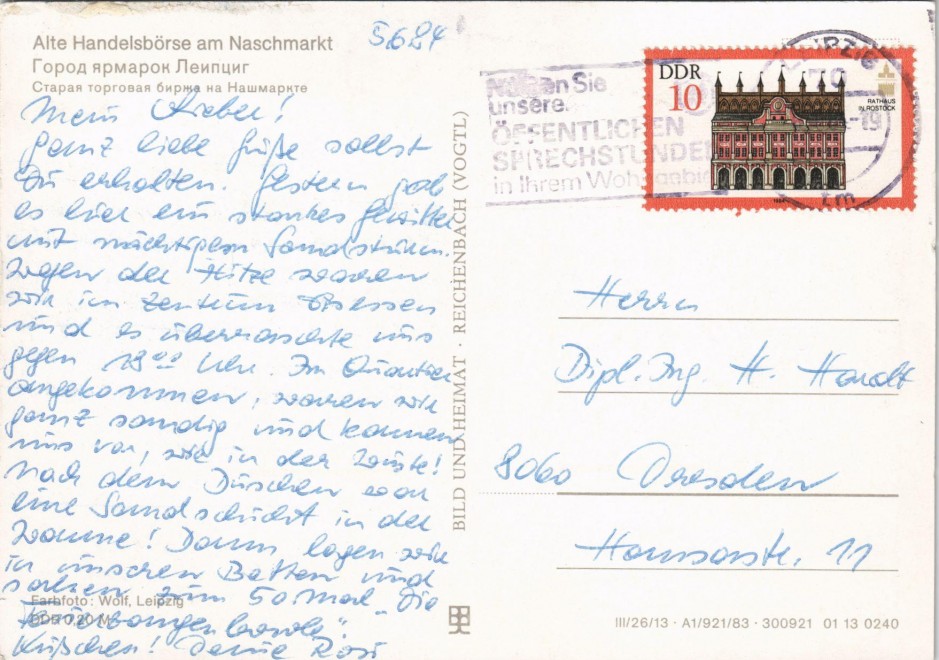 Alte Handelsbörse am Naschmarkt
Город ярмарок Леипциг
Старая торговая биржа на Нашмаркте
5.6.84
Mein Lieber!
Ganz liebe Grüße sollst
Du erhalten. Gestern gab
es hier ein starkes Gewitter
mit mächtigem Sandsturm.
Wegen der Hitze waren
wir im Zentrum Essen
und es überraschte uns
gegen 18°° Uhr. Im Quartier
angekommen, waren wir
ganz sandig und kamen
uns vor, wie in der Wüste!
Nach dem Duschen war
eine Sandschicht in der
Wanne! Dann lagen wir
in unseren Betten und
sahen zum 50. Mal "Die
Feuerzangenbowle".
Küßchen! Deine Rosi
Farbfoto: Wolf, Leipzig
DDR 0,20 M
BILD UND HEIMAT · REICHENBACH (VOGTL)
Nutzen Sie
unsere
ÖFFENTLICHEN
SPRECHSTUNDEN
in Ihrem Wohngebiet
LEIPZIG
70
-19
tm
DDR
10
RATHAUS
IN ROSTOCK
1984
Herrn
Dipl.-Ing. H. Hardt
8060 Dresden
Hansastr. 11
III/26/13 · A1/921/83 · 300921 01 13 0240